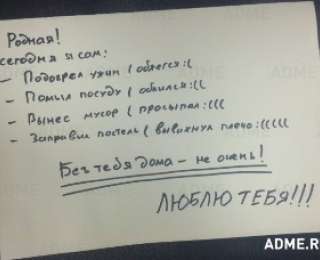 Родная!
сегодня я сам:
- Подогрел ужин (обжегся:(
- Помыл посуду (обжился:((
- Вынес мусор (просыпал:(((
- Заправил постель (вывихнул плечо:(((((
Без тебя дома - не очень!
ЛЮБЛЮ ТЕБЯ!!!
ADME.RU